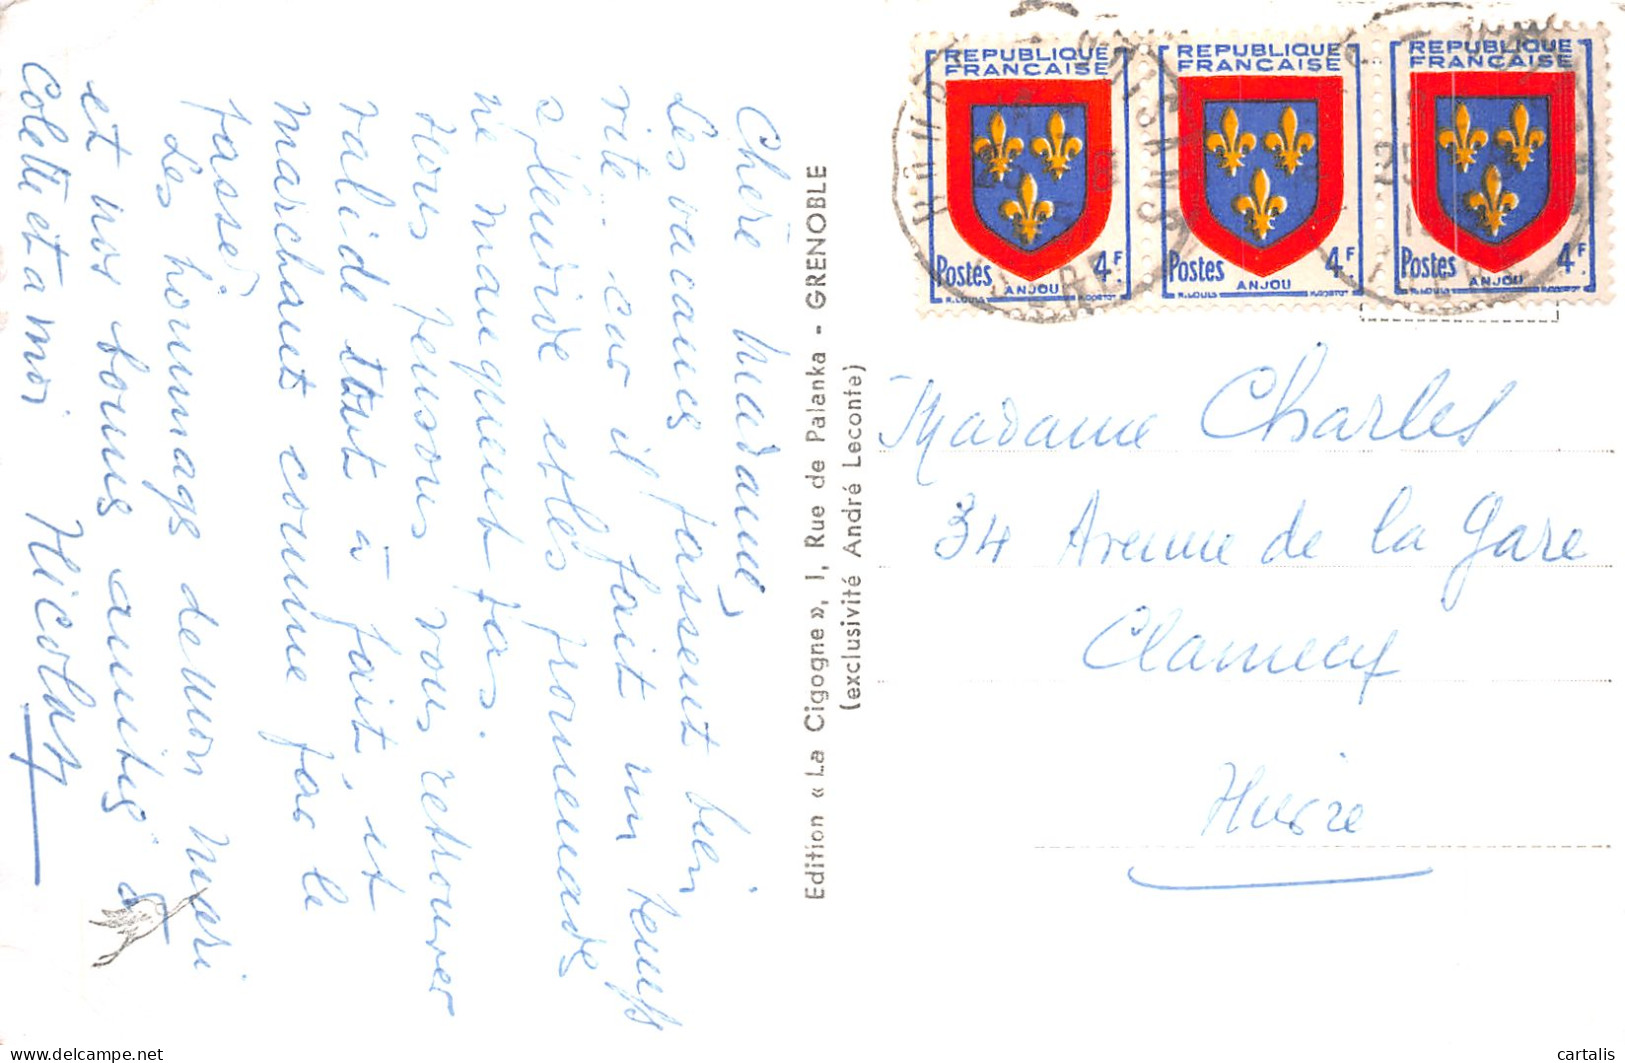 Chère Madame,
Les vacances passent bien
vite.. car il fait un temps
splendide et les promenades
ne manquent pas.
Nous pensons vous retrouver
valide tout à fait, et
marchant comme par le
passé.
Les hommages de mon mari
et nos bonnes amitiés à
Colette et à moi
Nicolas
Edition « La Cigogne », 1, Rue de Palanka - GRENOBLE
(exclusivité André Leconte)
REPUBLIQUE
FRANCAISE
Postes 4F
ANJOU
R.LOUIS
REPUBLIQUE
FRANCAISE
Postes 4F
ANJOU
R.LOUIS
REPUBLIQUE
FRANCAISE
Postes 4F
ANJOU
R.LOUIS
Madame Charles
34 Avenue de la Gare
Clamecy
Nièvre
cartalis